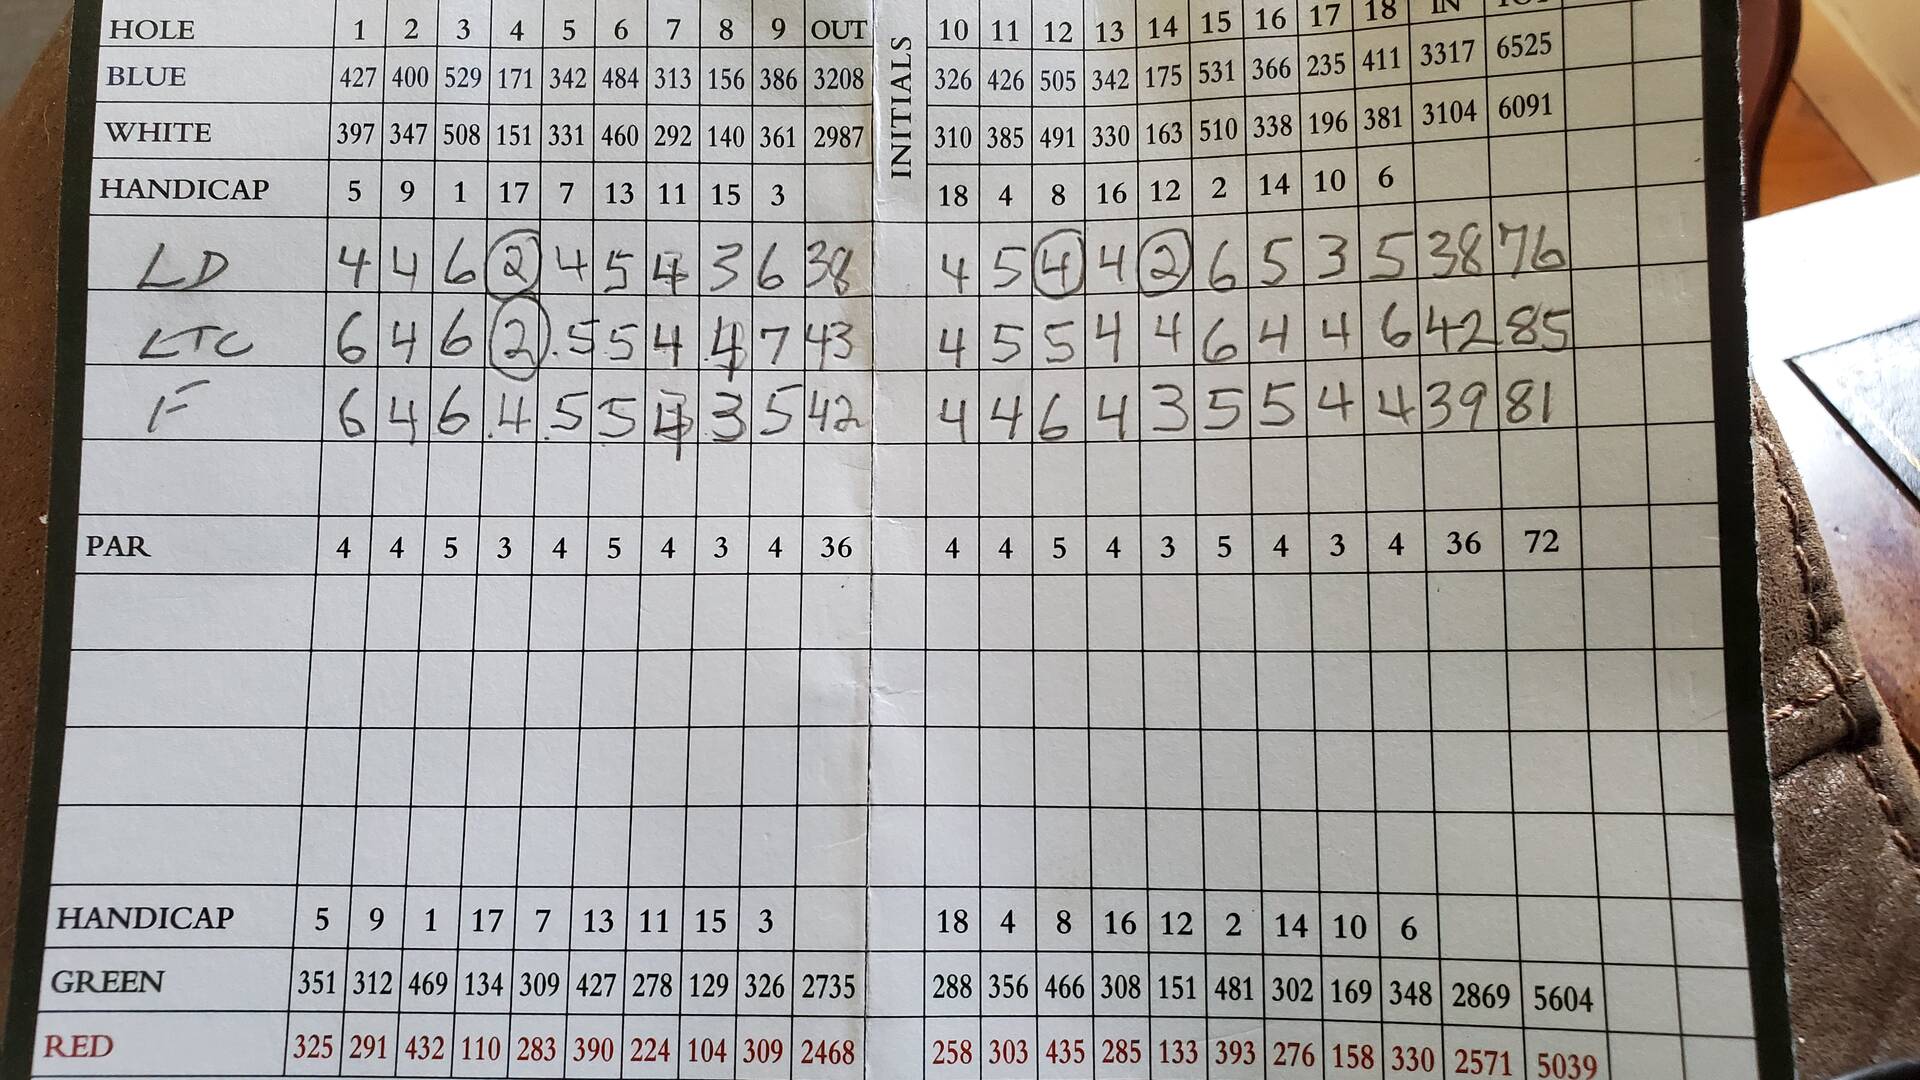 HOLE 1 2 3 4 5 6 7 8 9 OUT INITIALS 10 11 12 13 14 15 16 17 18 IN TOT
BLUE 427 400 529 171 342 484 313 156 386 3208 326 426 505 342 175 531 366 235 411 3317 6525
WHITE 397 347 508 151 331 460 292 140 361 2987 310 385 491 330 163 510 338 196 381 3104 6091
HANDICAP 5 9 1 17 7 13 11 15 3 18 4 8 16 12 2 14 10 6
LD 4 4 6 2 4 5 4 3 6 38 4 5 4 4 2 6 5 3 5 38 76
LTC 6 4 6 2 5 5 4 4 7 43 4 5 5 4 4 6 4 4 6 42 85
F 6 4 6 4 5 5 4 3 5 42 4 4 6 4 3 5 5 4 4 39 81
PAR 4 4 5 3 4 5 4 3 4 36 4 4 5 4 3 5 4 3 4 36 72
HANDICAP 5 9 1 17 7 13 11 15 3 18 4 8 16 12 2 14 10 6
GREEN 351 312 469 134 309 427 278 129 326 2735 288 356 466 308 151 481 302 169 348 2869 5604
RED 325 291 432 110 283 390 224 104 309 2468 258 303 435 285 133 393 276 158 330 2571 5039